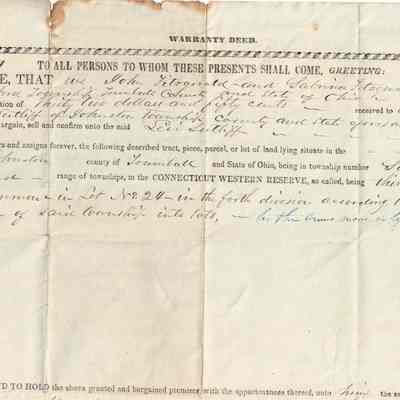 WARRANTY DEED.
TO ALL PERSONS TO WHOM THESE PRESENTS SHALL COME, GREETING:
E, THAT we John Fitzgerald and Sabrina
Township Trumbull County and State of Ohio
tion of Thirty two dollars and fifty cents — received to
Sutliff of Johnston township County and State
argain, sell and confirm unto the said Levi Sutliff
rs and assigns forever, the following described tract, piece, parcel, or lot of land lying situate in the
Johnston county of Trumbull and State of Ohio, being in township number
range of townships, in the CONNECTICUT WESTERN RESERVE, so called, being
in Lot No 24 in the forth division according
of said township into lots, — be the same more or
ND TO HOLD the above granted and bargained premises, with the appurtenances thereof, unto him the